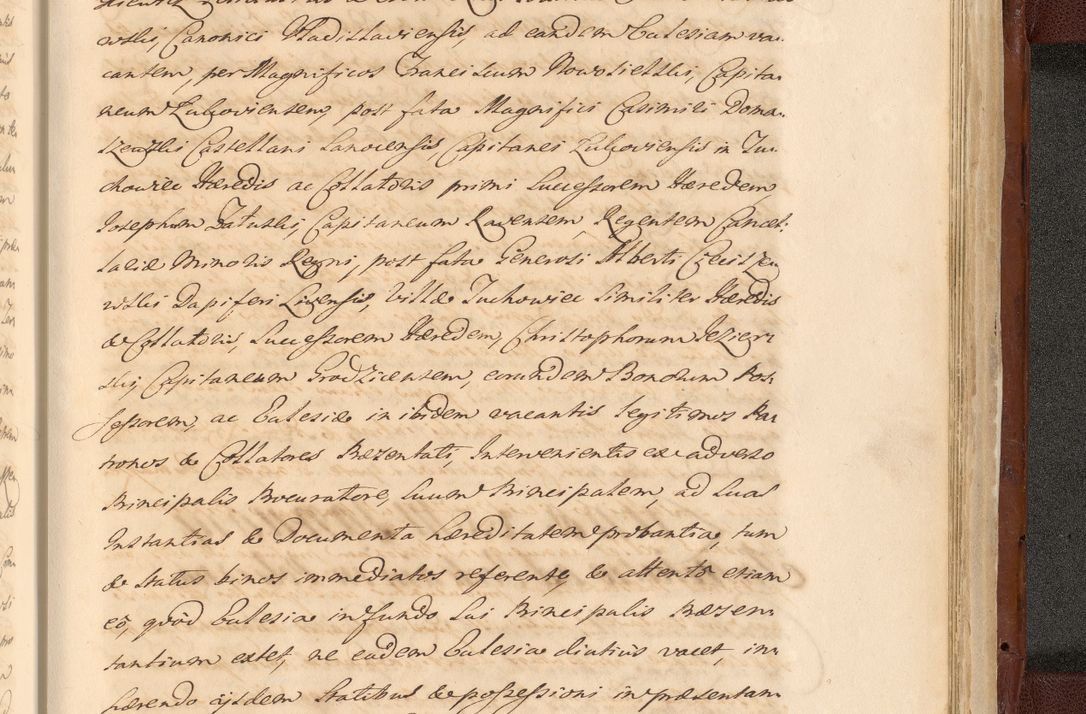 wski, Canonici Vladislaviensis, ad eandem Ecclesiam va-
cantem, per Magnificos Franciscum Nowosielski, Capita-
neum Lukoviensem, post fata Magnifici Casimiri Doma-
Castellani Sanocensis, Capitanei Lukoviensis in Tu-
chowiec Hæredis ac Collatoris primi Successorem Hæredem,
Josephum Załuski, Capitaneum Ravensem, Regentem Cancel-
lariæ Minoris Regni, post fata Generosi Alberti
wski Dapiferi Livensis, Villæ Tuchowiec similiter Hæredis
& Collatoris, Successorem Hæredem, Christophorum Jezier-
ski, Capitaneum eorundem Bonorum Pos-
sessorem, ac Ecclesiæ in ibidem vacantis legitimos Pa-
tronos & Collatores Præsentati, Intervenientis ex adverso
Principalis Procuratore, suum Principalem, ad suas
Instantias & Documenta hæreditatem probantia, tum
& status binos immediatos referente, & attento etiam
eo, quod Ecclesia in fundo sui Principalis Præsen-
tantium extet, ne eadem Ecclesia diutius vacet, in-
hærendo ejsdem statibus & possessioni in præsentan-